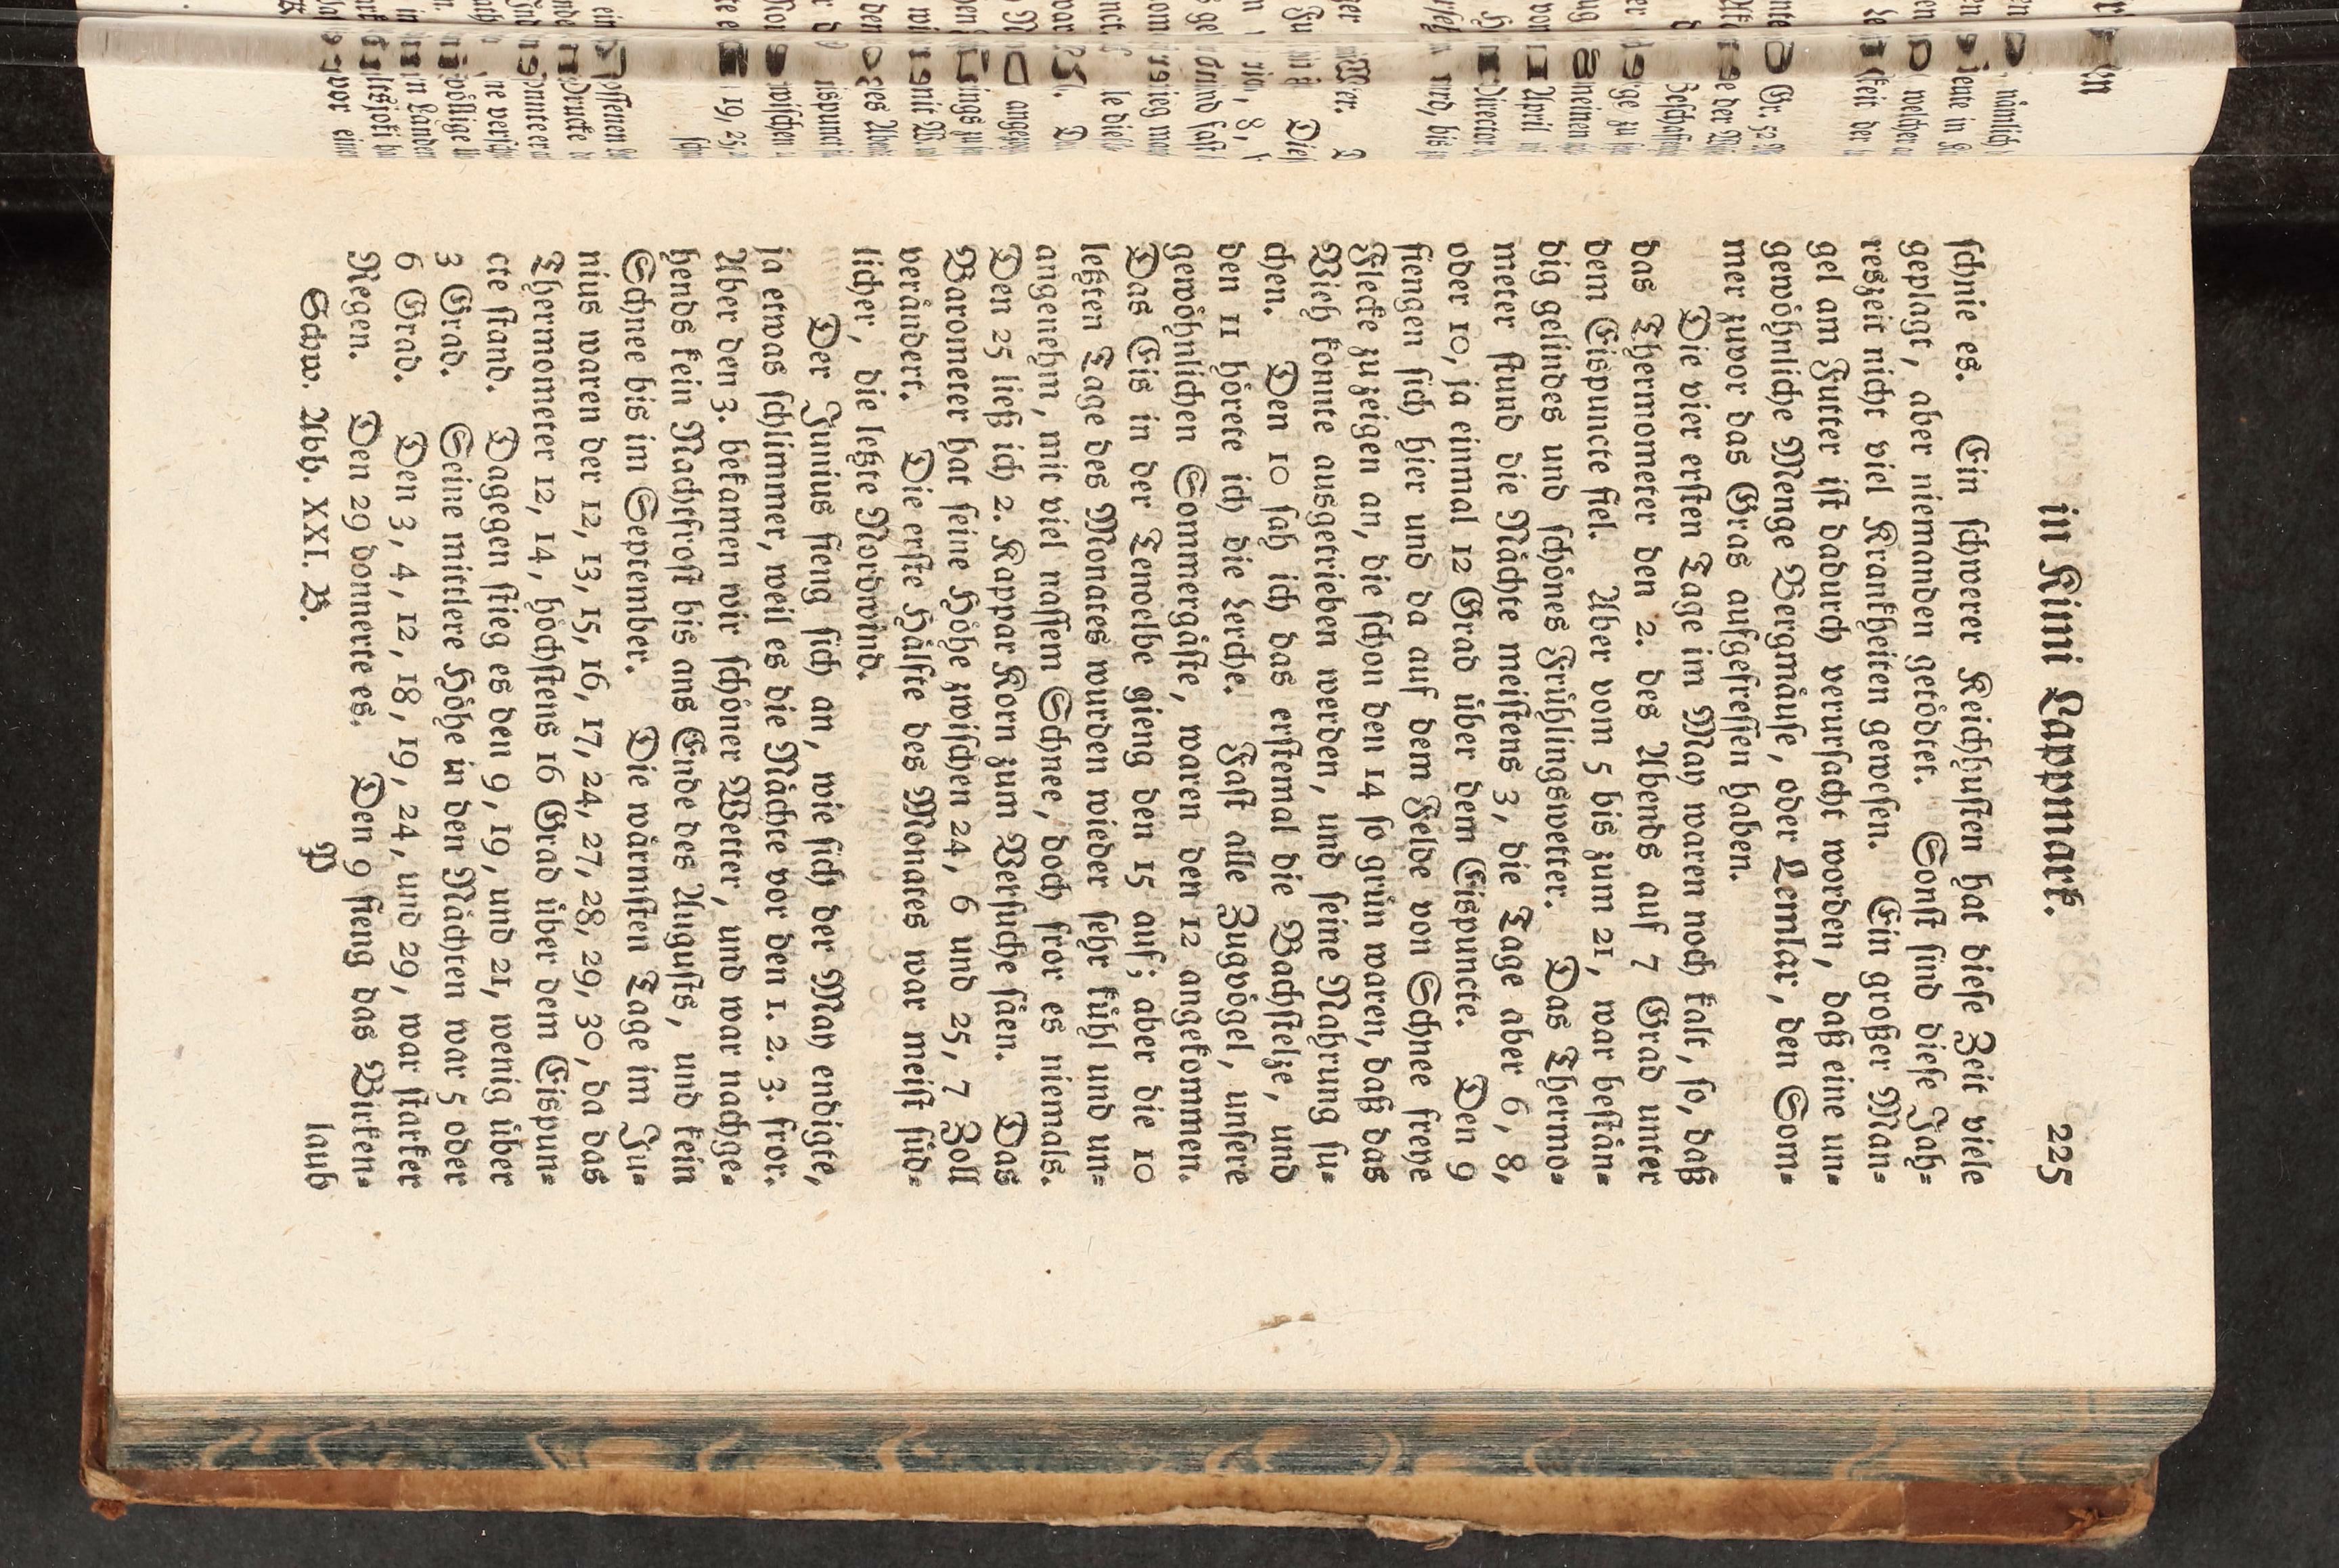 in Kimi Lappmark. 225
ſchnie es. Ein ſchwerer Keichhuſten hat dieſe Zeit viele
geplagt, aber niemanden getödtet. Sonſt ſind dieſe Jah-
reszeit nicht viel Krankheiten geweſen. Ein großer Man-
gel am Futter iſt dadurch verurſacht worden, daß eine un-
gewöhnliche Menge Bergmäuſe, oder Lemlar, den Som-
mer zuvor das Gras aufgefreſſen haben.
Die vier erſten Tage im May waren noch kalt, ſo, daß
das Thermometer den 2. des Abends auf 7 Grad unter
dem Eispuncte fiel. Aber vom 5 bis zum 21, war beſtän-
dig gelindes und ſchönes Frühlingswetter. Das Thermo-
meter ſtund die Nächte meiſtens 3, die Tage aber 6, 8,
oder 10, ja einmal 12 Grad über dem Eispuncte. Den 9
fiengen ſich hier und da auf dem Felde von Schnee freye
Flecke zu zeigen an, die ſchon den 14 ſo grün waren, daß das
Vieh konnte ausgetrieben werden, und ſeine Nahrung ſu-
chen. Den 10 ſah ich das erſtemal die Bachſtelze, und
den 11 hörete ich die Lerche. Faſt alle Zugvögel, unſere
gewöhnlichen Sommergäſte, waren den 12 angekommen.
Das Eis in der Tenoelbe gieng den 15 auf; aber die 10
letzten Tage des Monates wurden wieder ſehr kühl und un-
angenehm, mit viel naſſem Schnee, doch fror es niemals.
Den 25 ließ ich 2. Kappar Korn zum Verſuche ſäen. Das
Barometer hat ſeine Höhe zwiſchen 24, 6 und 25, 7 Zoll
verändert. Die erſte Hälfte des Monates war meiſt ſüd-
licher, die letzte Nordwind.
Der Junius fieng ſich an, wie ſich der May endigte,
ja etwas ſchlimmer, weil es die Nächte vor den 1. 2. 3. fror.
Aber den 3. bekamen wir ſchöner Wetter, und war nachge-
hends kein Nachtfroſt bis ans Ende des Auguſts, und kein
Schnee bis im September. Die wärmſten Tage im Ju-
nius waren der 12, 13, 15, 16, 17, 24, 27, 28, 29, 30, da das
Thermometer 12, 14, höchſtens 16 Grad über dem Eispun-
cte ſtand. Dagegen ſtieg es den 9, 19, und 21, wenig über
3 Grad. Seine mittlere Höhe in den Nächten war 5 oder
6 Grad. Den 3, 4, 12, 18, 19, 24, und 29, war ſtarker
Regen. Den 29 donnerte es. Den 9 fieng das Birken-
Schw. Abh. XXI. B. P laub